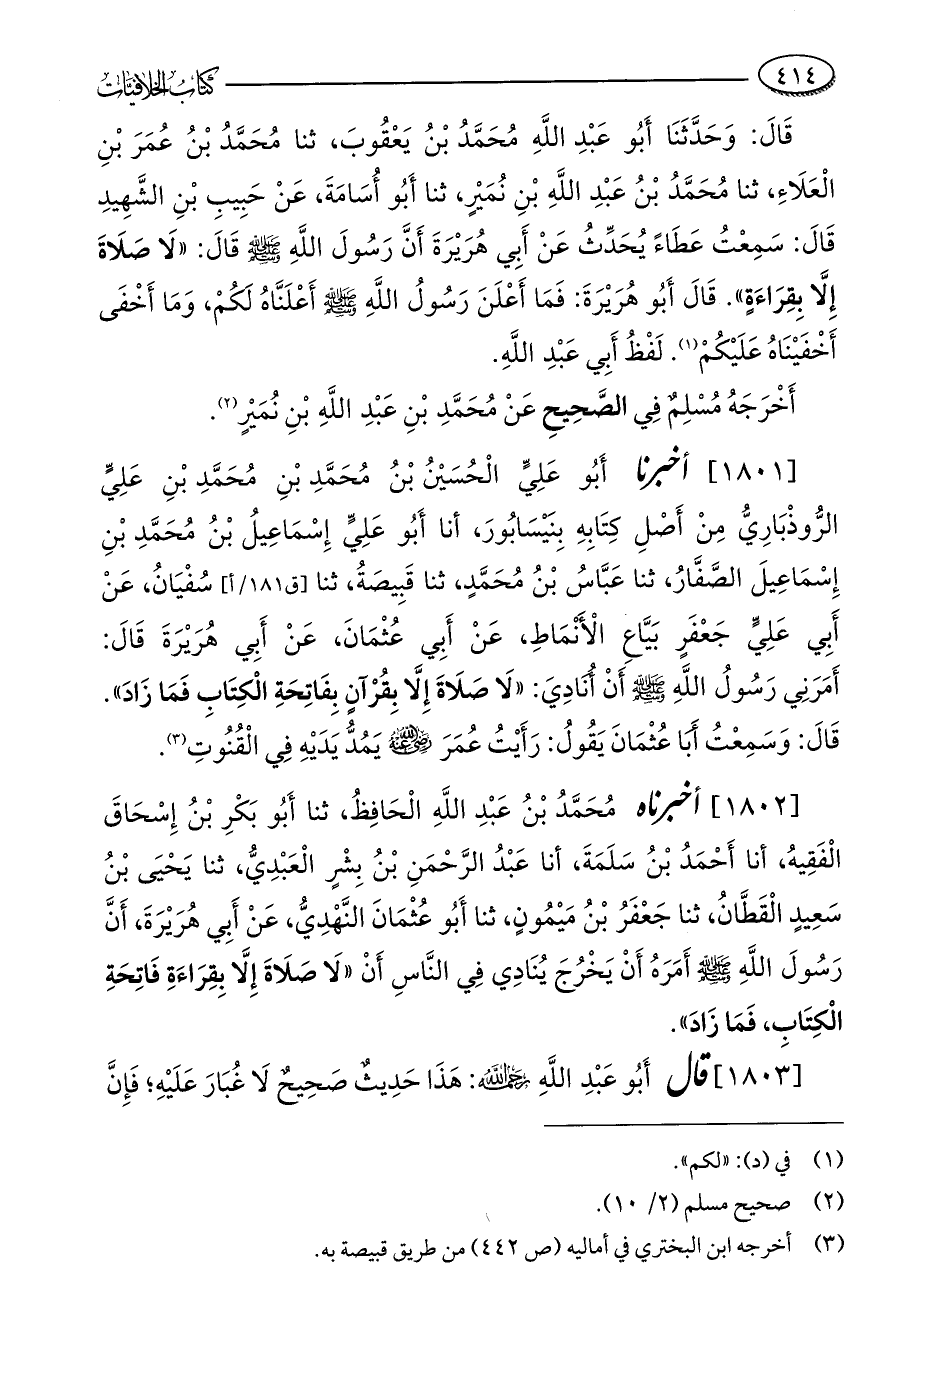 ٤١٤ كتاب الخلافيات
قَالَ: وَحَدَّثَنَا أَبُو عَبْدِ اللَّهِ مُحَمَّدُ بْنُ يَعْقُوبَ، ثنا مُحَمَّدُ بْنُ عُمَرَ بْنِ
الْعَلَاءِ، ثنا مُحَمَّدُ بْنُ عَبْدِ اللَّهِ بْنِ نُمَيْرٍ، ثنا أَبُو أُسَامَةَ، عَنْ حَبِيبِ بْنِ الشَّهِيدِ
قَالَ: سَمِعْتُ عَطَاءً يُحَدِّثُ عَنْ أَبِي هُرَيْرَةَ أَنَّ رَسُولَ اللَّهِ ﷺ قَالَ: «لَا صَلَاةَ
إِلَّا بِقِرَاءَةٍ». قَالَ أَبُو هُرَيْرَةَ: فَمَا أَعْلَنَ رَسُولُ اللَّهِ ﷺ أَعْلَنَّاهُ لَكُمْ، وَمَا أَخْفَى
أَخْفَيْنَاهُ عَلَيْكُمْ(١). لَفْظُ أَبِي عَبْدِ اللَّهِ.
أَخْرَجَهُ مُسْلِمٌ فِي الصَّحِيحِ عَنْ مُحَمَّدِ بْنِ عَبْدِ اللَّهِ بْنِ نُمَيْرٍ(٢).
[١٨٠١] أخبرنا أَبُو عَلِيٍّ الْحُسَيْنُ بْنُ مُحَمَّدِ بْنِ مُحَمَّدِ بْنِ عَلِيٍّ
الرُّوذْبَارِيُّ مِنْ أَصْلِ كِتَابِهِ بِنَيْسَابُورَ، أنا أَبُو عَلِيٍّ إِسْمَاعِيلُ بْنُ مُحَمَّدِ بْنِ
إِسْمَاعِيلَ الصَّفَّارُ، ثنا عَبَّاسُ بْنُ مُحَمَّدٍ، ثنا قَبِيصَةُ، ثنا [ق١٨١/أ] سُفْيَانُ، عَنْ
أَبِي عَلِيٍّ جَعْفَرٍ بَيَّاعِ الْأَنْمَاطِ، عَنْ أَبِي عُثْمَانَ، عَنْ أَبِي هُرَيْرَةَ قَالَ:
أَمَرَنِي رَسُولُ اللَّهِ ﷺ أَنْ أُنَادِيَ: «لَا صَلَاةَ إِلَّا بِقُرْآنٍ بِفَاتِحَةِ الْكِتَابِ فَمَا زَادَ».
قَالَ: وَسَمِعْتُ أَبَا عُثْمَانَ يَقُولُ: رَأَيْتُ عُمَرَ رضي الله عنه يَمُدُّ يَدَيْهِ فِي الْقُنُوتِ(٣).
[١٨٠٢] أخبرناه مُحَمَّدُ بْنُ عَبْدِ اللَّهِ الْحَافِظُ، ثنا أَبُو بَكْرِ بْنُ إِسْحَاقَ
الْفَقِيهُ، أنا أَحْمَدُ بْنُ سَلَمَةَ، أنا عَبْدُ الرَّحْمَنِ بْنُ بِشْرٍ الْعَبْدِيُّ، ثنا يَحْيَى بْنُ
سَعِيدٍ الْقَطَّانُ، ثنا جَعْفَرُ بْنُ مَيْمُونٍ، ثنا أَبُو عُثْمَانَ النَّهْدِيُّ، عَنْ أَبِي هُرَيْرَةَ، أَنَّ
رَسُولَ اللَّهِ ﷺ أَمَرَهُ أَنْ يَخْرُجَ يُنَادِي فِي النَّاسِ أَنْ «لَا صَلَاةَ إِلَّا بِقِرَاءَةِ فَاتِحَةِ
الْكِتَابِ، فَمَا زَادَ».
[١٨٠٣] قال أَبُو عَبْدِ اللَّهِ رحمه الله: هَذَا حَدِيثٌ صَحِيحٌ لَا غُبَارَ عَلَيْهِ؛ فَإِنَّ
(١) في (د): «لكم».
(٢) صحيح مسلم (٢/ ١٠).
(٣) أخرجه ابن البختري في أماليه (ص ٤٤٢) من طريق قبيصة به.